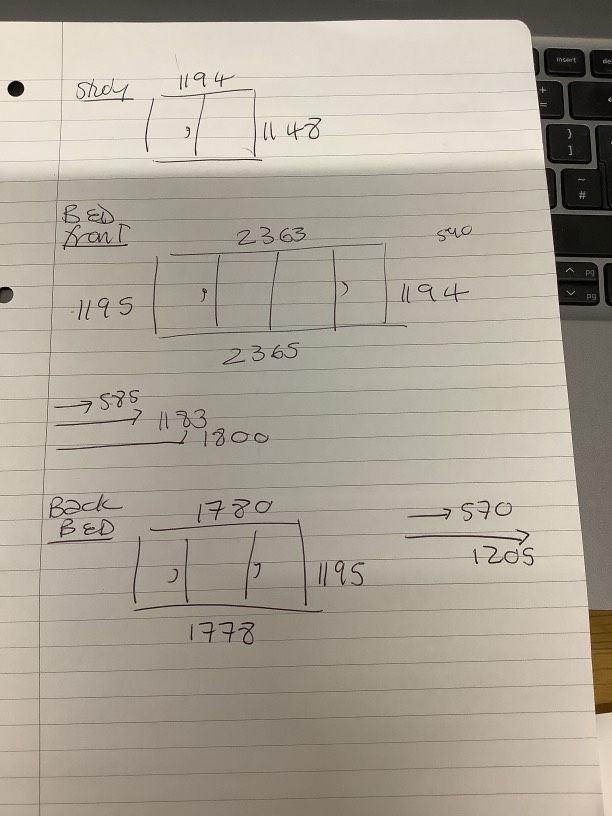 Study
1194
1148
BED
front
2363
540
1195
1194
2365
585
1183
1800
Back
BED
1780
570
1205
1195
1778
insert
de
+
=
}
]
~
#
pg
pg